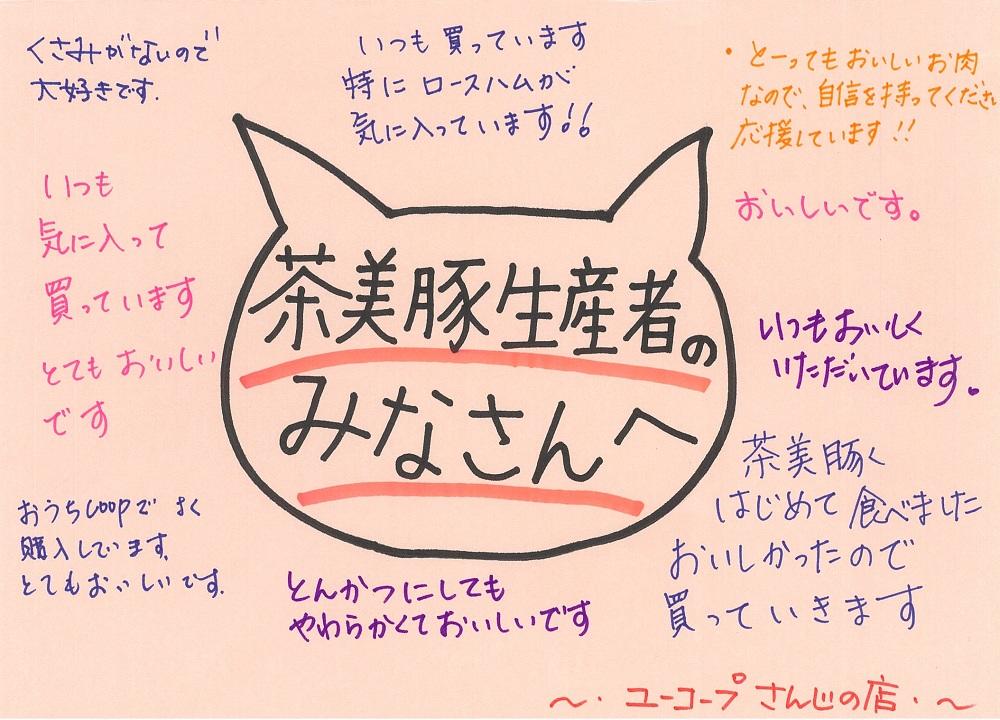 くさみがないので
大好きです。
いつも買っています
特にロースハムが
気に入っています!!
・とーってもおいしいお肉
なので、自信を持ってくださ
応援しています!!
いつも
気に入って
買っています
とてもおいしい
です
おいしいです。
茶美豚生産者の
みなさんへ
いつもおいしく
いただいています。
茶美豚く
はじめて食べました
おいしかったので
買っていきます
おうちCOOPでよく
購入しています。
とてもおいしいです。
とんかつにしても
やわらかくておいしいです
〜・ユーコープさんじの店・〜